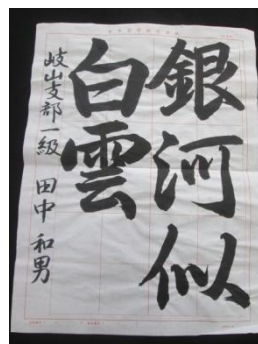 銀河似
白雲
岐山支部一級 田中和男